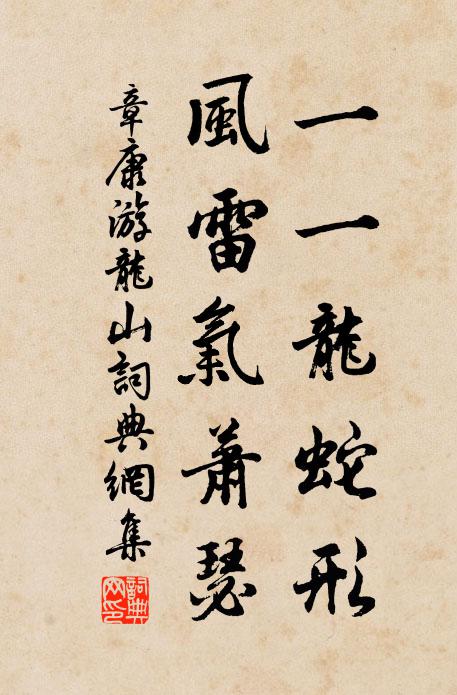 一一龍蛇形
風雷氣蕭瑟
章康游龍山詞典網集
詞典網印